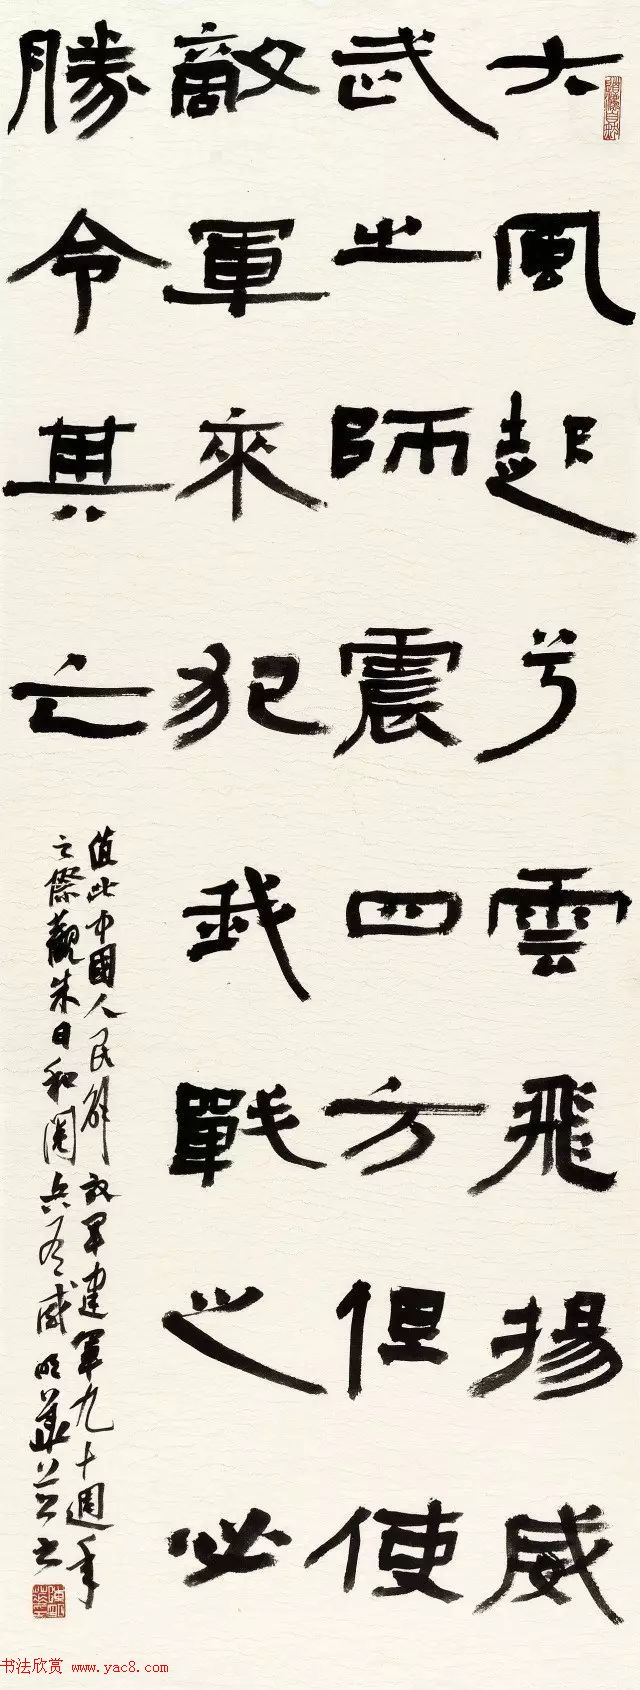 大風起兮雲飛揚威
武之師震四方但使
敵軍來犯我戰之必
勝令其亡
值此中國人民解放軍建軍九十週年
之際觀朱日和閱兵有感明華並書
书法欣赏 www.yac8.com